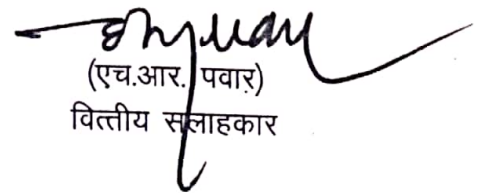 (एच.आर. पवार)
वित्तीय सलाहकार